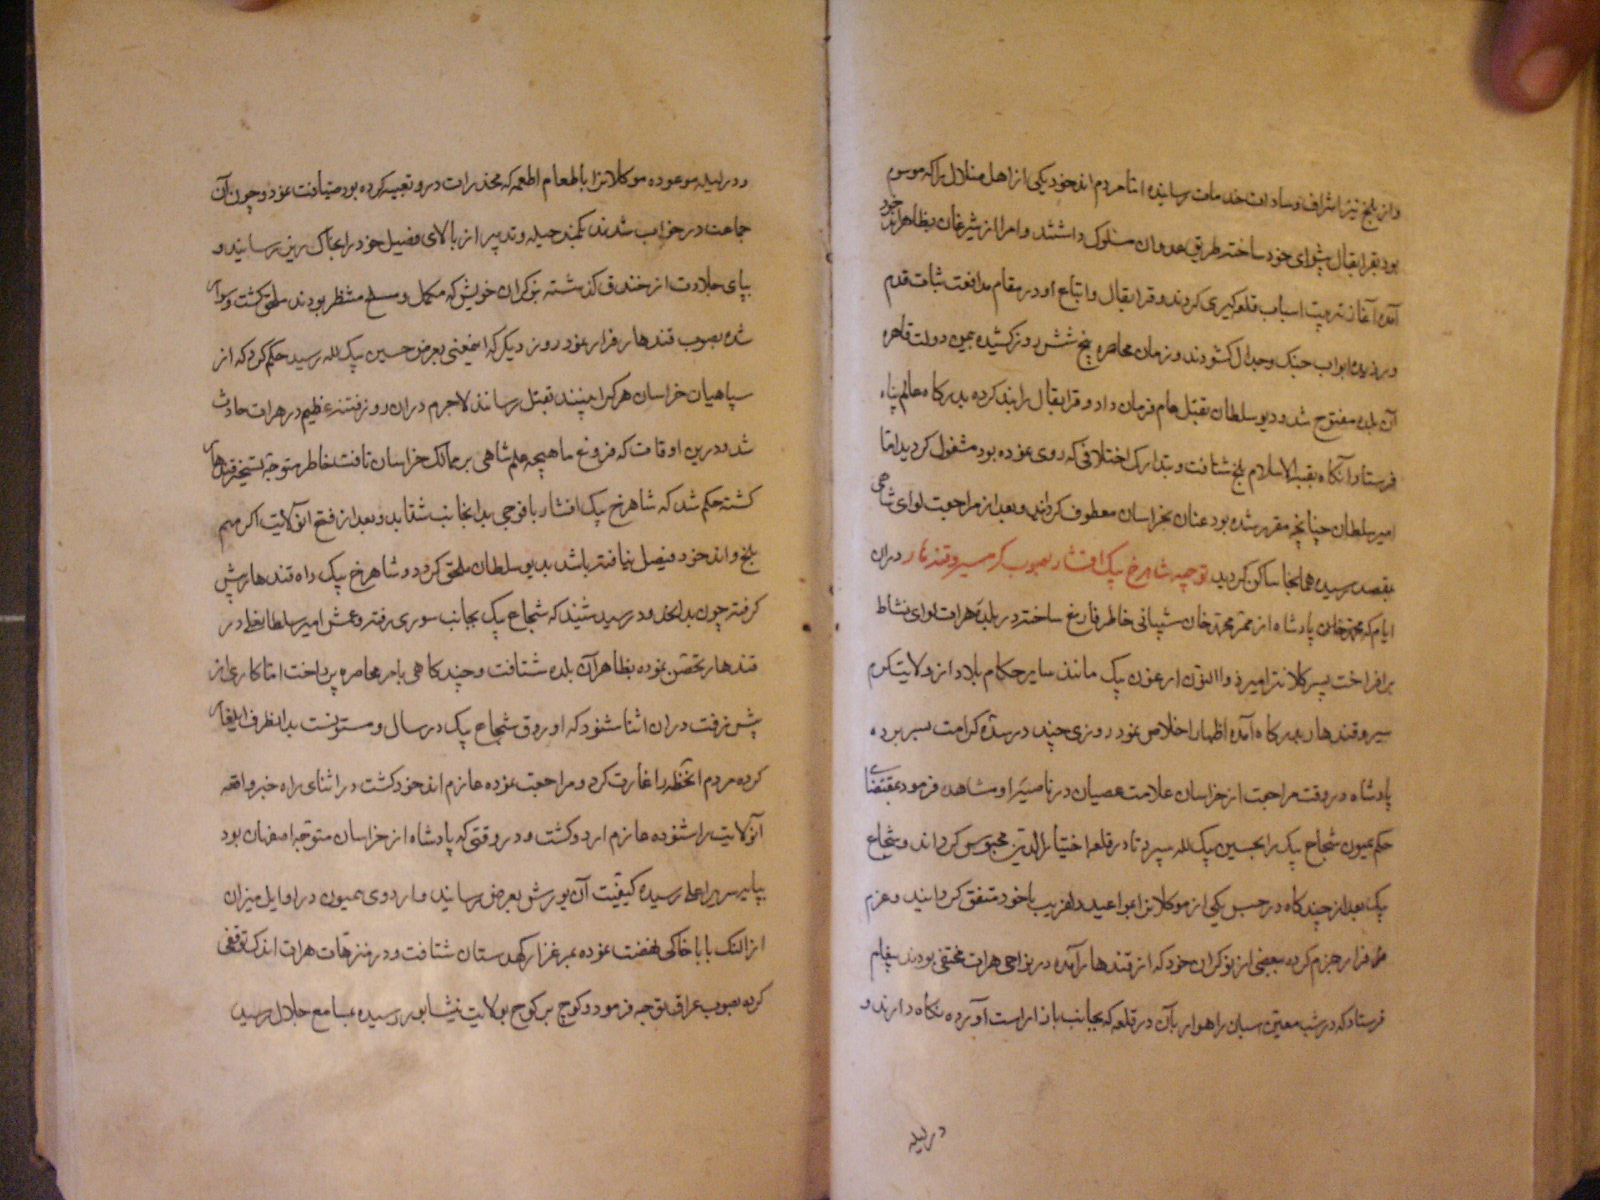 و از بلخ نیز اشراف و سادات خدمات رسانیده اما مردم اندخود یکی از اهل ضلال را که موسوم
بود بقرابقال پیشوای خود ساخته طریق عدوان مسلوک داشتند و امرا از شبرغان بظاهر اندخود
آمده آغاز ترتیب اسباب قلعه کیری کردند و قرابقال و اتباع او در مقام مدافعت ثبات قدم
ورزیده ابواب جنک و جدال کشودند و زمان محاصره پنج شش روز کشیده بیمن دولت قاهره
آن بلده مفتوح شد و دیو سلطان بقتل عام فرمان داد و قرابقال را بند کرده بدرکاه عالم پناه
فرستاد و آنکاه بقبة الاسلام بلخ شتافت و بتدارک اختلافی که روی نموده بود مشغول کردید اما
امیر سلطان چنانچه مقرر شده بود عنان بخراسان معطوف کردانید و بعد از مراجعت لوای شاهی
بقصد رسیده همانجا ساکن کردید توجه شاهرخ بیک افشار بصوب کرمسیر و قندهار دران
ایام که محمد خان پادشاه از ممر محمد خان شیبانی خاطر فارغ ساخته در بلده هرات لوای نشاط
برافراخت پسر کلانتر امیر ذو النون ارغون بیک مانند سایر حکام بلاد از ولایت کرم
سیر و قندهار بدرکاه آمده اظهار اخلاص نمود روزی چند در سده کرامت بسر برد
پادشاه در وقت مراجعت از خراسان علامت عصیان در ناصیه او مشاهده فرمود بمقتضای
حکم همیون شجاع بیک را بحسین بیک لله سپرد تا در قلعه اختیار الدین محبوس کرداند و شجاع
بیک بعد از چندکاه در حبس یکی از موکلانرا بمواعید دلفریب با خود متفق کردانید و عزم
فرار جزم کرده ببعضی از نوکران خود که از قندهار آمده در نواحی هرات مختفی بودند پیغام
فرستاد که در شب معین اسبان راهوار بآن در قلعه که بجانب بازار است آورده نکاه دارند و
در لیله
و در لیله موعوده موکلانرا با طعام اطعمه که مخدرات درو تعبیه کرده بود ضیافت نمود و چون آن
جماعت در خواب شدند بکمند حیله و تدبیر از بالای فصیل خود را بخاک ریز رسانید و
بپای جلادت از خندق کذشته بنوکران خویش که مکمل و مسلح منتظر بودند ملحق کشت و سوار
شده بصوب قندهار فرار نمود روز دیکر که اینمعنی بعرض حسین بیک لله رسید حکم کرد که از
سپاهیان خراسان هرکرا بینند بقتل رسانند لاجرم دران روز فتنه عظیم در هرات حادث
شد و درین اوقات که فروغ ماهیچه علم شاهی بر ممالک خراسان تافت خاطر متوجه تسخیر قندهار
کشته حکم شد که شاهرخ بیک افشار با فوجی بدانجانب شتابد و بعد از فتح آنولایت اکر مهم
بلخ و اندخود فیصل نیافته باشد بدیو سلطان ملحق کردد و شاهرخ بیک راه قندهار پیش
کرفته چون بدانحدود رسید شنید که شجاع بیک بجانب سوری رفته و عمش امیر سلطانعلی در
قندهار تحصن نموده بظاهر آن بلده شتافت و چندکاهی بامر محاصره پرداخت اما کاری از
پیش نرفت دران اثنا شنود که اوروق شجاع بیک در سال و مستونست بدانطرف ایلغار
کرده مردم آنخطه را غارت کرد و مراجعت نموده عازم اندخود کشت در اثنای راه خبر واقعه
آنولایت را شنوده عازم اردو کشت و در وقتی که پادشاه از خراسان متوجه اصفهان بود
بپایه سریر اعلی رسیده کیفیت آن یورش بعرض رسانید و اردوی همیون در اوایل میزان
از النک بابا خاکی نهضت نموده بمرغزار کهدستان شتافت و در منزهات هرات اندک توقفی
کرده بصوب عراق توجه فرمود و کوچ بر کوچ بولایت نیشابور رسیده بمسامع جلال رسید